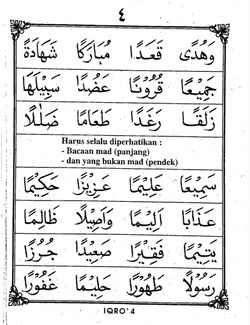 ٤
وَهُدًى قَعَدًا مُبَارَكًا شَهَادَةً
جَمِيْعًا قُرُوْنًا عَضُدًا سَبِيْلَهَا
زَلَقًا رَغَدًا طَعَامًا ضَلٰلًا
Harus selalu diperhatikan :
- Bacaan mad (panjang)
- dan yang bukan mad (pendek)
سَمِيْعًا عَلِيْمًا عَزِيْزًا حَكِيْمًا
عَذَابًا اَلِيْمًا وَاَصِيْلًا ظَالِمًا
يَتِيْمًا فَقِيْرًا صَعِيْدًا جُرُزًا
رَسُوْلًا طَهُوْرًا حَلِيْمًا غَفُوْرًا
IQRO'4